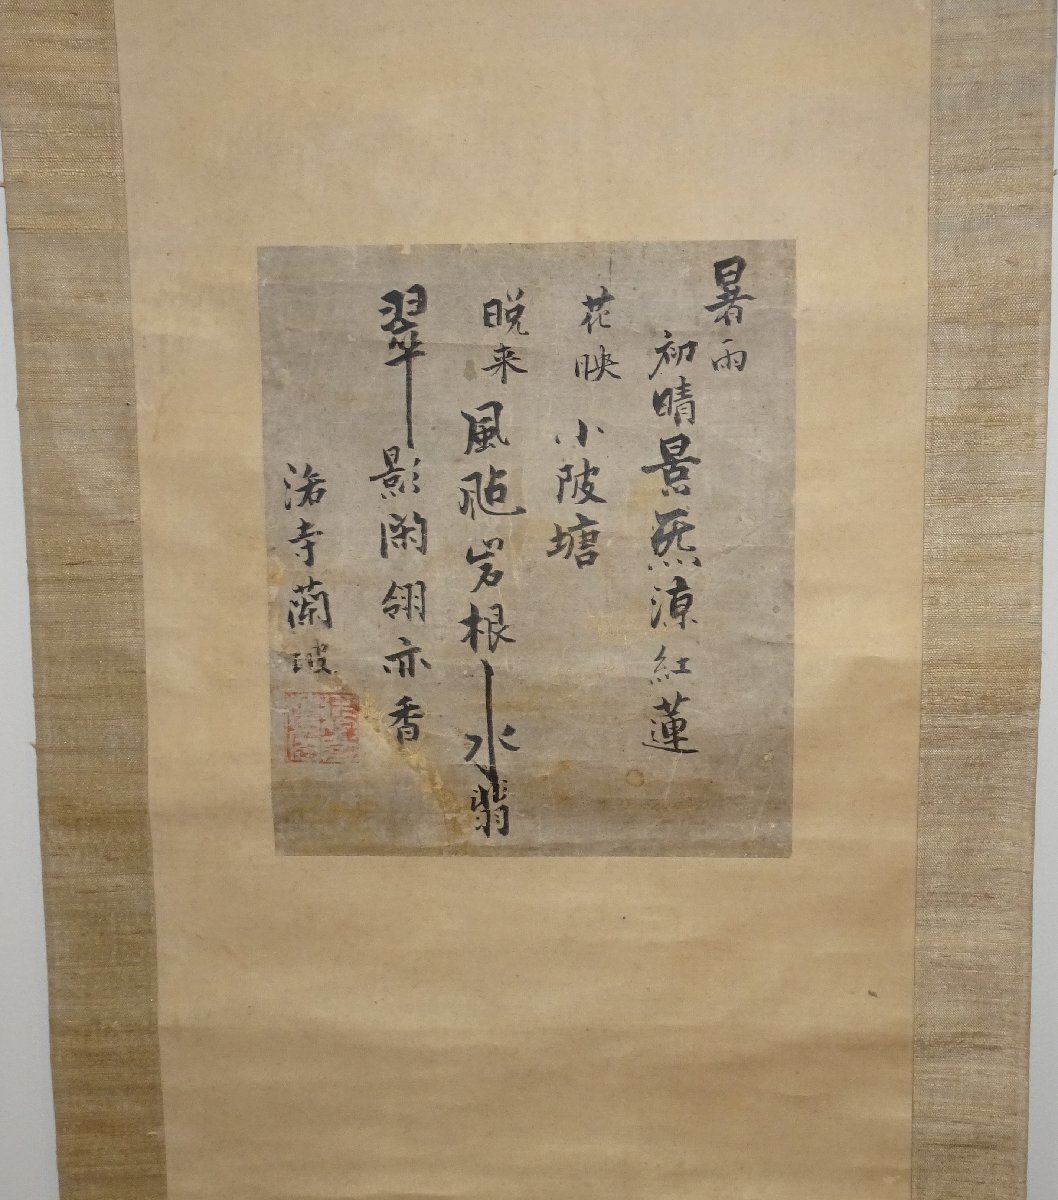 暑雨
初晴景炁涼紅蓮
花映小陂塘
晩来風颭岩根水翡
翠影翎亦香
寺蘭坡